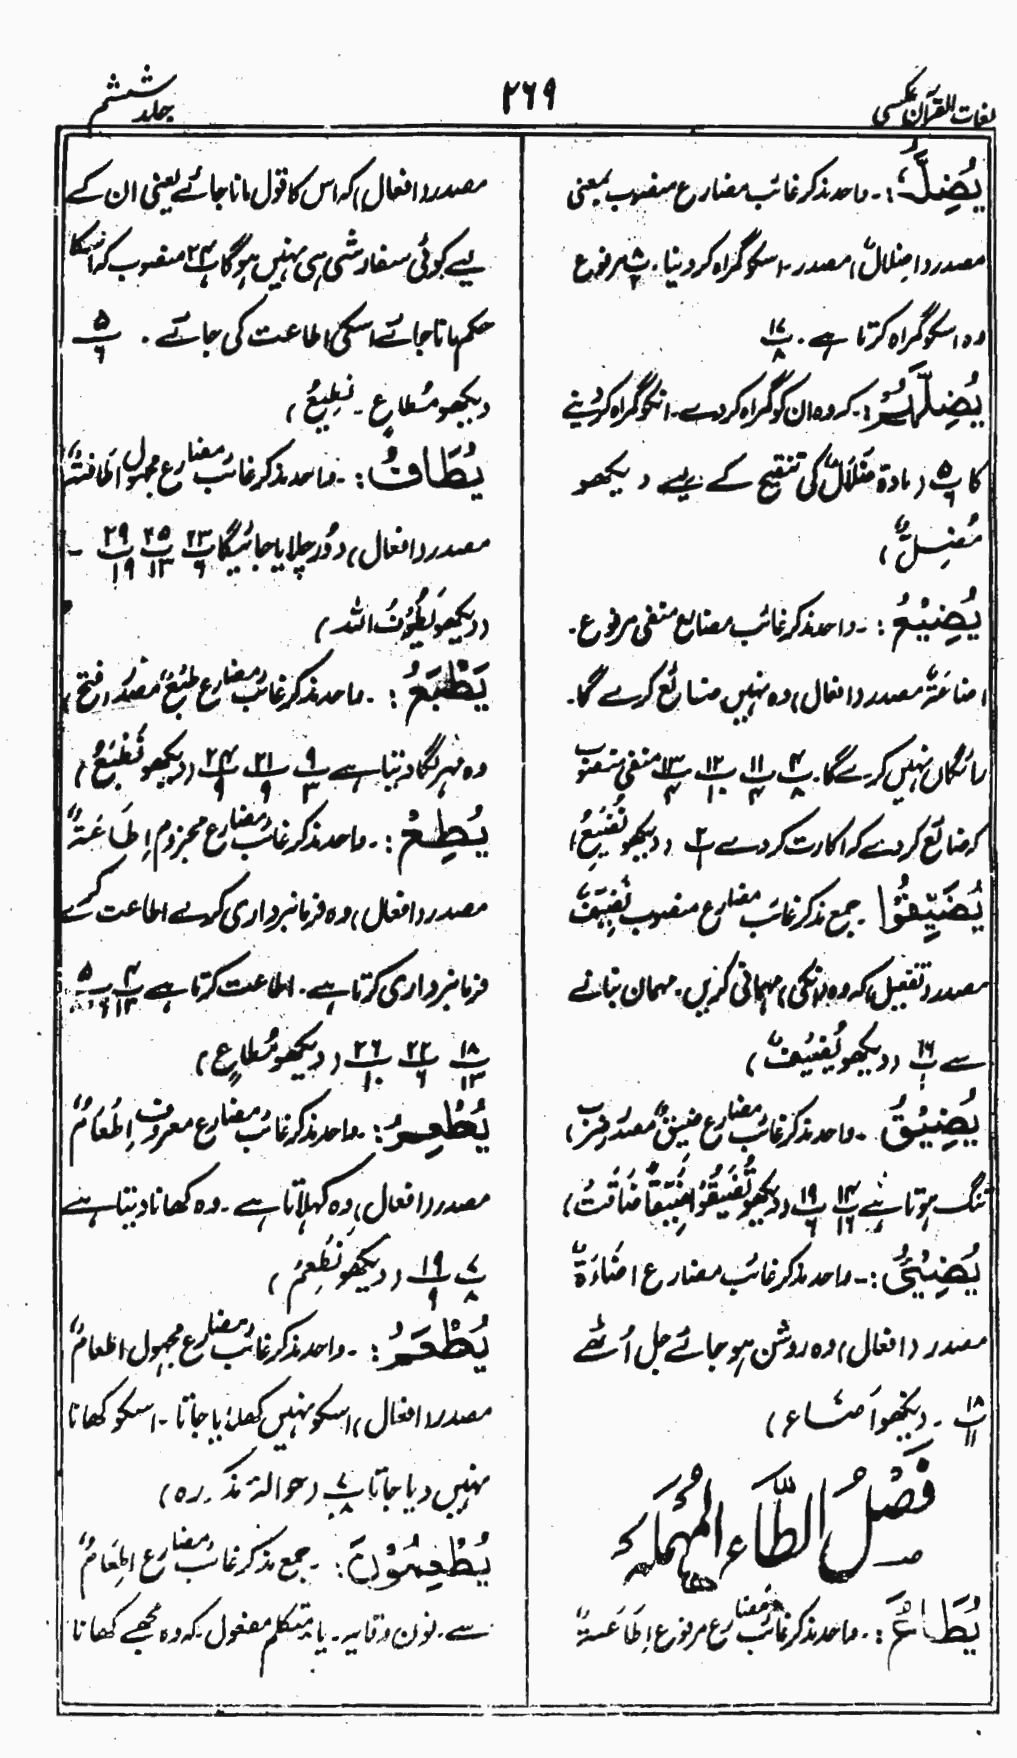 لغات القرآن عکسی
۲۶۹
جلد ششم
یُضِلَّ :۔ واحد مذکر غائب مضارع منصوب بمعنی
مصدر (اِضلالٌ) مصدر۔ اسکو گمراہ کردینا۔ پ۸/۲ مرفوع
وہ اسکو گمراہ کرتا ہے۔ پ۱۷/۸
یُضِلَّهُمْ :۔ کہ وہ ان کو گمراہ کردے۔ انکو گمراہ کردینے
کا پ۵/۶ (مادۃ ضَلَالٌ کی تنقیح کے لیے دیکھو
مُضِلٌّ)
یُضِیْعُ :۔ واحد مذکر غائب مضارع منفی مرفوع۔
اضاعَۃٌ مصدر (افعال) وہ نہیں ضائع کرے گا۔
رائگاں نہیں کرے گا۔ پ۴/۸ پ۱۱/۴ پ۱۲/۱۰ پ۱۳/۴ منفی منصوب
کہ ضائع کردے کہ اکارت کردے پ۲/۱ (دیکھو نُضِیْعُ)
یُضَیِّفُوْا ۔ جمع مذکر غائب مضارع منصوب تَضْیِیْفٌ
مصدر (تفعیل) کہ وہ (انکی) مہمانی کریں۔ مہمان بنانے
سے پ۱۶/۱ (دیکھو تَضْیِیْفٌ)
یَضِیْقُ ۔ واحد مذکر غائب مضارع ضِیْقٌ مصدر (ضرب)
تنگ ہوتا ہے پ۱۴/۱۶ پ۱۹/۶ (دیکھو تُضَیِّقُوْا ضَیِّقًا ضَاقَتْ)
یُضِیْٓئُ :۔ واحد مذکر غائب مضارع اضَاءَۃٌ
مصدر (افعال) وہ روشن ہو جائے جل اُٹھے
پ۱۸/۱۱ ۔ دیکھو اَضَاءَ)
فَصْلُ الطَّاءِ الْمُهْمَلَةِ
یُطَاعُ :۔ واحد مذکر غائب مضارع مرفوع اِطَاعَۃٌ
مصدر (افعال) کہ اس کا قول مانا جائے یعنی ان کے
لیے کوئی سفارشی ہی نہیں ہوگا پ۲۴ منصوب کہ اسکا
حکم مانا جائے اسکی اطاعت کی جائے۔ پ۵/۶
دیکھو مُطاعٍ ۔ نُطِیْعُ)
یُطَافُ :۔ واحد مذکر غائب مضارع مجہول اطَافَۃٌ
مصدر (افعال) دور چلایا جائیگا پ۲۳/۶ پ۲۵/۱۳ پ۲۹/۱۹ ۔
(دیکھو یَطُوْفُ اللہ)
یَطْبَعُ :۔ واحد مذکر غائب مضارع طَبْعٌ مصدر (فتح)
وہ مہر لگا دیتا ہے پ۹/۳ پ۲۱/۹ پ۲۴/۹ (دیکھو نَطْبَعُ)
یُطِعْ :۔ واحد مذکر غائب مضارع مجزوم اِطَاعَۃٌ
مصدر (افعال) وہ فرمانبرداری کرے اطاعت کرے
فرمانبرداری کرتا ہے۔ اطاعت کرتا ہے پ۴/۱۳ پ۵/۶
پ۱۸/۱۳ پ۲۲/۶ پ۲۶/۱۰ (دیکھو مُطاعٍ)
یُطْعِمُ :۔ واحد مذکر غائب مضارع معروف اِطْعَامٌ
مصدر (افعال) وہ کہلاتا ہے۔ وہ کھانا دیتا ہے
پ۷/۸ پ۱۹/۹ (دیکھو نُطْعِمُ)
یُطْعَمُ :۔ واحد مذکر غائب مضارع مجہول اطعامٌ
مصدر (افعال) اسکو نہیں کھلایا جاتا۔ اسکو کھانا
نہیں دیا جاتا پ۷/۸ (حوالۂ مذکورہ)
یُطْعِمُوْنِ :۔ جمع مذکر غائب مضارع اطعَامٌ
سے۔ نون وقایہ۔ یا متکلم مفعول۔ کہ وہ مجھے کھانا